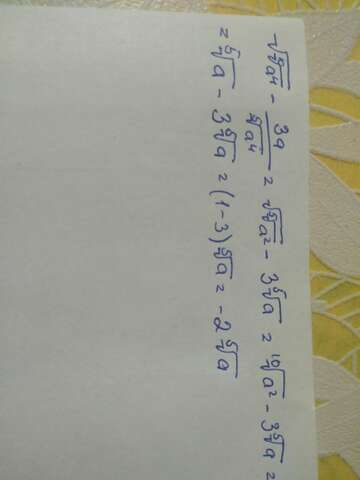 √(⁵√a⁴) - 3a/⁵√a⁴ = √(⁵√a²) - 3⁵√a = ¹⁰√a² - 3⁵√a =
= ⁵√a - 3⁵√a = (1-3)⁵√a = -2⁵√a